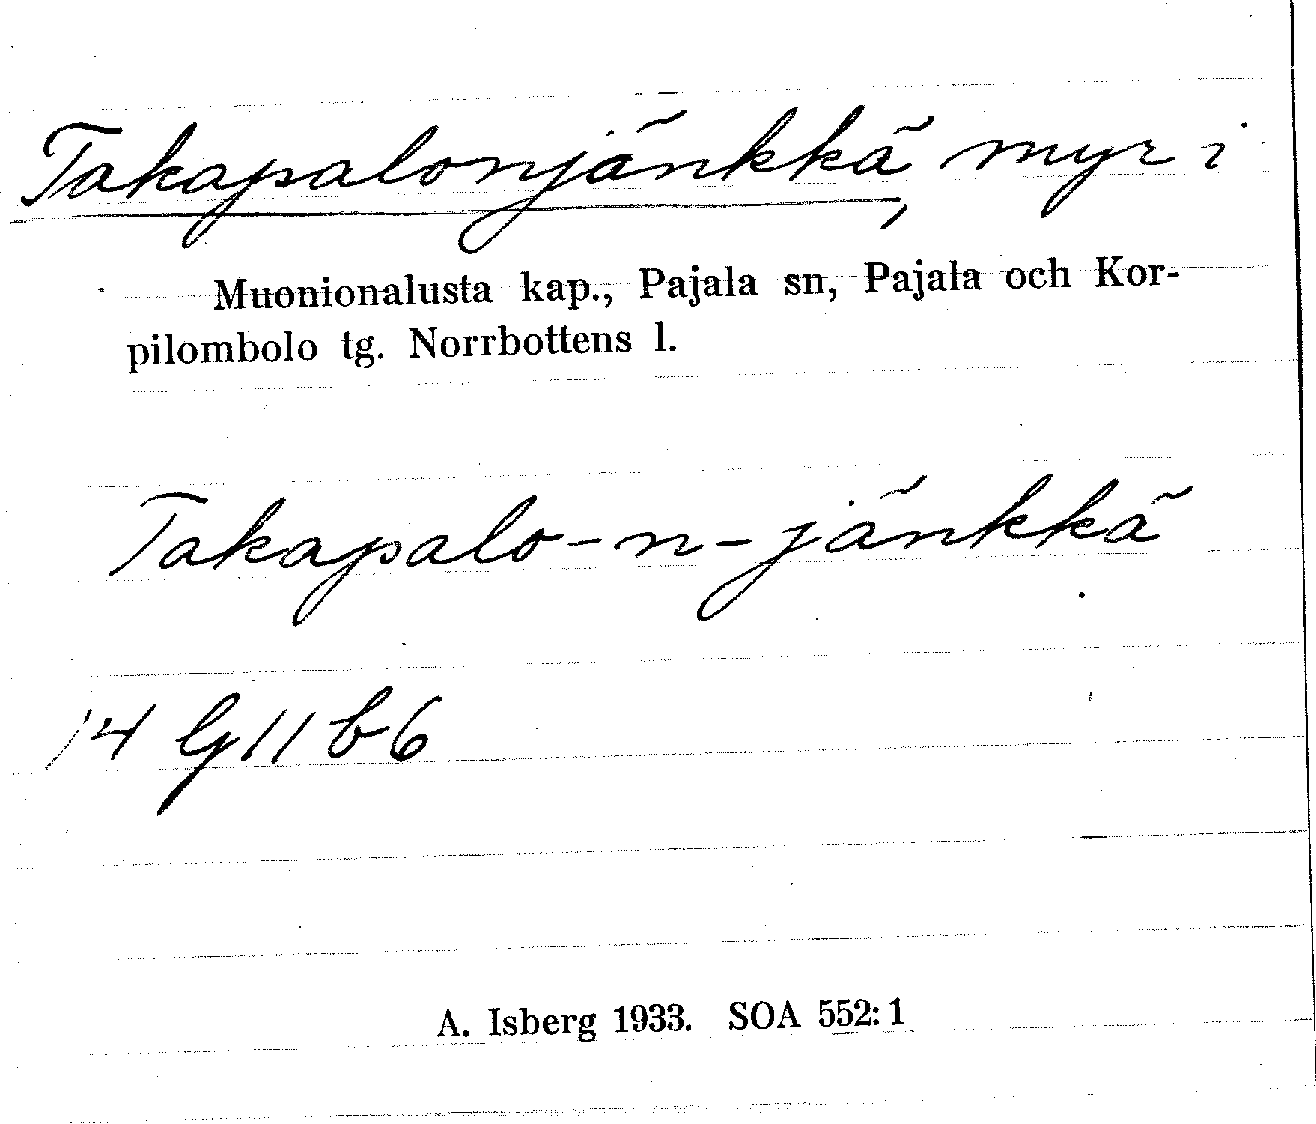 Takapalonjänkkä, myr i
Muonionalusta kap., Pajala sn, Pajala och Kor-
pilombolo tg. Norrbottens l.
Takapalo-n-jänkkä
14 G 11 b 6
A. Isberg 1933. SOA 552:1